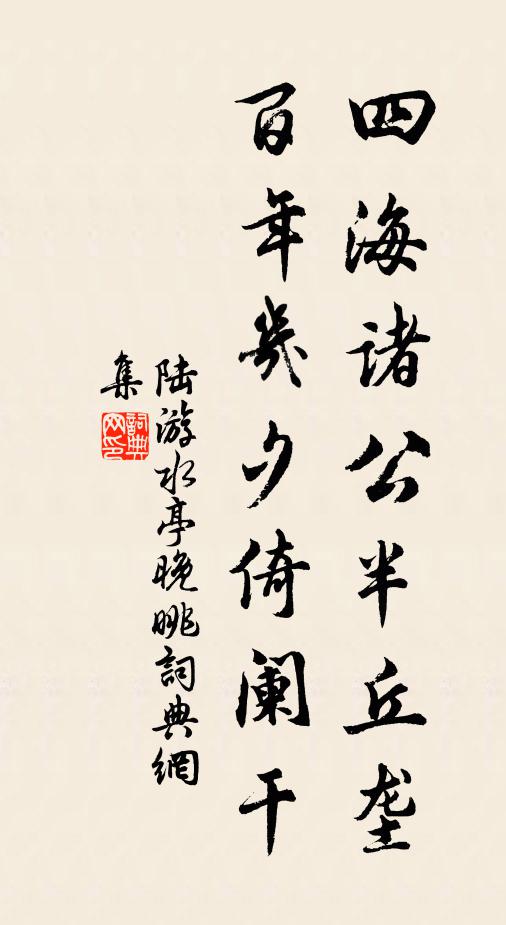 四海诸公半丘垄
百年几夕倚阑干
陆游水亭晚眺詞典網
集
詞典
网印